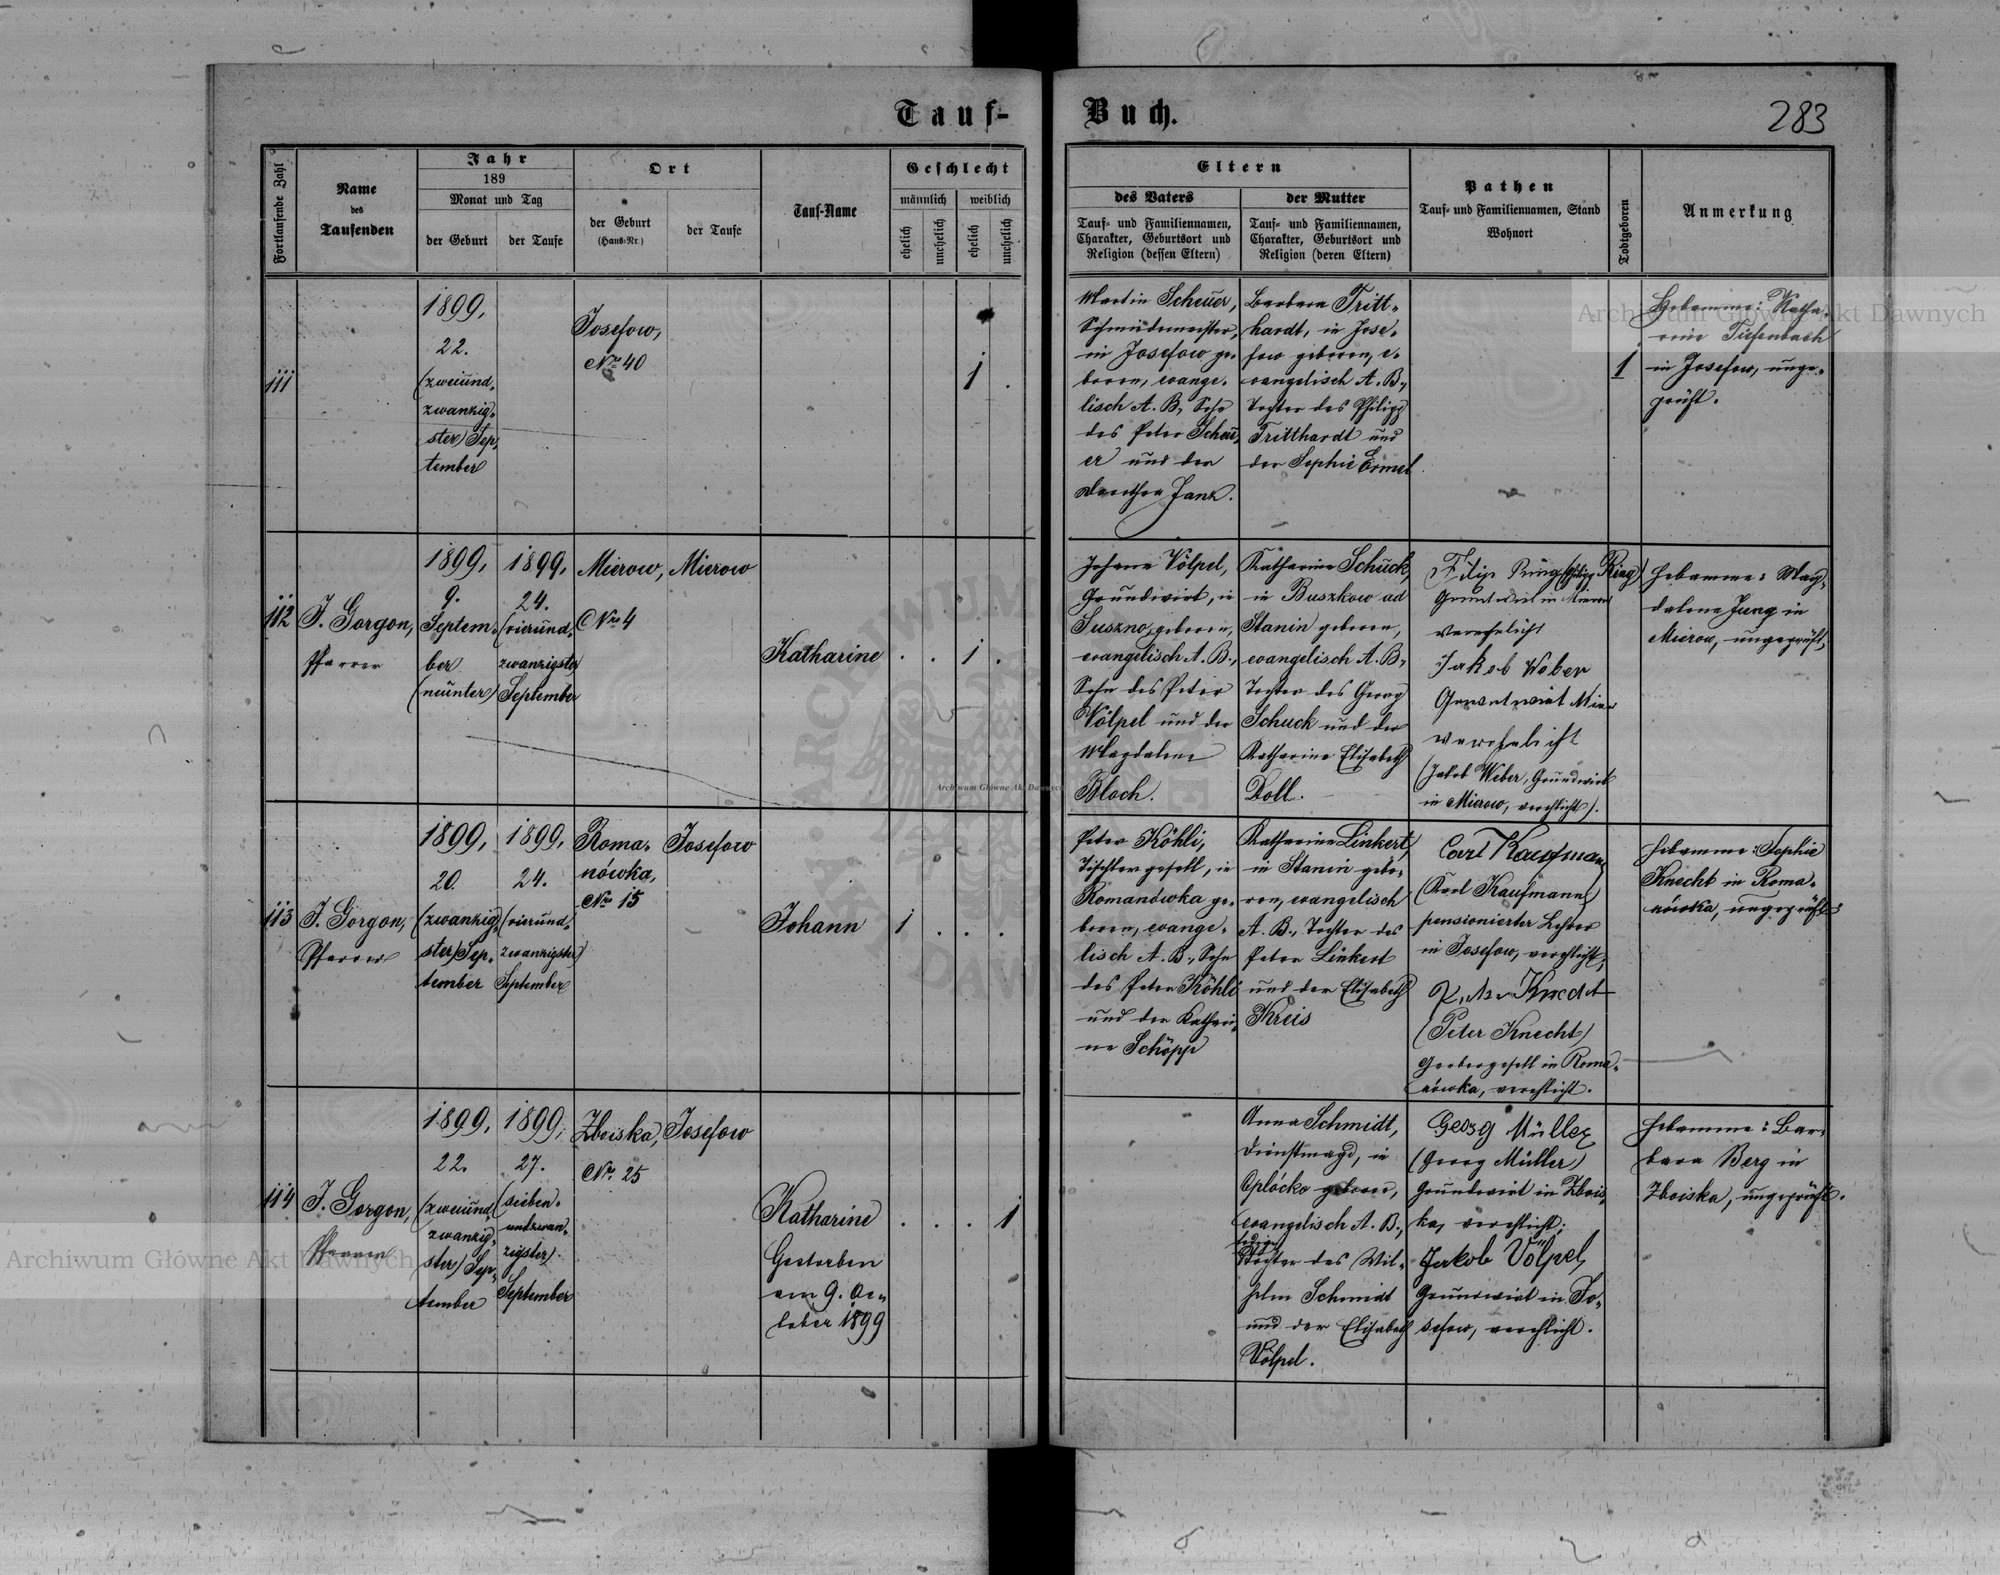 Tauf-
Buch.
283
Fortlaufende Zahl
Name
des
Taufenden
Jahr
189
Monat und Tag
der Geburt
der Taufe
Ort
der Geburt
(Haus-Nr.)
der Taufe
Tauf-Name
Geschlecht
männlich
weiblich
ehelich
unehelich
ehelich
unehelich
Eltern
des Vaters
Tauf- und Familiennamen,
Charakter, Geburtsort und
Religion (dessen Eltern)
der Mutter
Tauf- und Familiennamen,
Charakter, Geburtsort und
Religion (deren Eltern)
Pathen
Tauf- und Familiennamen, Stand
Wohnort
Todtgeboren
Anmerkung
111
1899,
22.
(zweiund-
zwanzig-
ster) Sep-
tember
Josefow,
Nro 40
1 .
Martin Scheuer,
Schmidemeister,
in Josefow ge-
boren, evange-
lisch A. B., Sohn
des Peter Scheu-
er und der
Dorothea Janz.
Barbara Tritt-
hardt, in Jose-
fow geboren, e-
vangelisch A. B.,
Tochter des Philipp
Tritthardt und
der Sophie Ermel
1
Hebamme: Katha-
rina Tiefenbach
in Josefow, unge-
prüft.
112
J. Gorgon,
Pfarrer
1899,
9.
Septem-
ber
(neunter)
1899,
24.
(vierund-
zwanzigster)
September
Mierow,
Nro 4
Mierow
Katharine
. . 1 .
Johann Völpel,
Grundwirt, in
Suszno geboren,
evangelisch A. B.,
Sohn des Peter
Völpel und der
Magdalena
Bloch.
Katharina Schuck,
in Buszkow ad
Stanin geboren,
evangelisch A. B.,
Tochter des Georg
Schuck und der
Katharina Elisabeth
Doll.
Filip Ring (Philipp Ring)
Grundwirt in Mierow
verehelicht
Jakob Weber
Grundwirt Mierow
verehelicht
(Jakob Weber, Grundwirt
in Mierow, verehlicht).
Hebamme: Mag-
dalena Jung in
Mierow, ungeprüft.
113
J. Gorgon,
Pfarrer
1899,
20.
(zwanzig-
ster) Sep-
tember
1899,
24.
(vierund-
zwanzigster)
September
Roma-
nówka,
Nro 15
Josefow
Johann
1 . . .
Peter Köhli,
Tischlergesell, in
Romanówka ge-
boren, evange-
lisch A. B., Sohn
des Peter Köhli
und der Kathari-
ne Schöpp
Katharina Linkert,
in Stanin gebo-
ren, evangelisch
A. B., Tochter des
Peter Linkert
und der Elisabeth
Kreis
Carl Kaufmann
(Karl Kaufmann)
pensionierter Lehrer
in Josefow, verehlicht;
Peter Knecht
(Peter Knecht)
Gerbergesell in Roma-
nówka, verehlicht.
Hebamme: Sophie
Knecht in Roma-
nówka, ungeprüft.
114
J. Gorgon,
Pfarrer
1899,
22.
(zweiund-
zwanzig-
ster) Sep-
tember
1899,
27.
(sieben-
undzwan-
zigster)
September
Zboiska,
Nr. 25
Josefow
Katharine
Gestorben
am 9. Oc-
tober 1899
. . . 1
Anna Schmidt,
Dienstmagd, in
Opłócko geboren,
evangelisch A. B.,
ledige
Tochter des Wil-
helm Schmidt
und der Elisabeth
Völpel.
Georg Müller
(Georg Müller)
Grundwirt in Zbois-
ka, verehlicht;
Jakob Völpel,
Grundwirt in Jo-
sefow, verehlicht.
Hebamme: Bar-
bara Berg in
Zboiska, ungeprüft.
Archiwum Główne Akt Dawnych
Archiwum Główne Akt Dawnych
Archiwum Główne Akt Dawnych